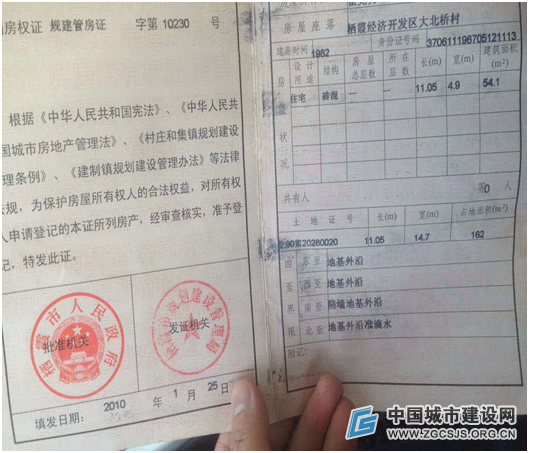 房权证 规建管房证 字第10230 号
根据《中华人民共和国宪法》、《中华人民共
国城市房地产管理法》、《村庄和集镇规划建设
理条例》、《建制镇规划建设管理办法》等法律
规，为保护房屋所有权人的合法权益，对所有权
人申请登记的本证所列房产，经审查核实，准予登
记，特发此证。
栖霞市人民政府
批准机关
发证机关
填发日期： 2010 年 1 月 25
房屋座落 栖霞经济开发区大北桥村
建房时间 1982 身份证号码 370611196705121113
房 状 况
设计用途 结构 房屋总层数 所在层数 长(m) 宽(m) 建筑面积(m²)
住宅 砖混 一 一 11.05 4.9 54.1
共有人 等0 人
土地证号 长(m) 宽(m) 占地面积(m²)
90第20280020 11.05 14.7 162
四 东至 地基外沿
至 西至 地基外沿
界 南至 院墙地基外沿
限 北至 地基外沿准滴水
附记：
中国城市建设网
WWW.ZGCSJS.ORG.CN